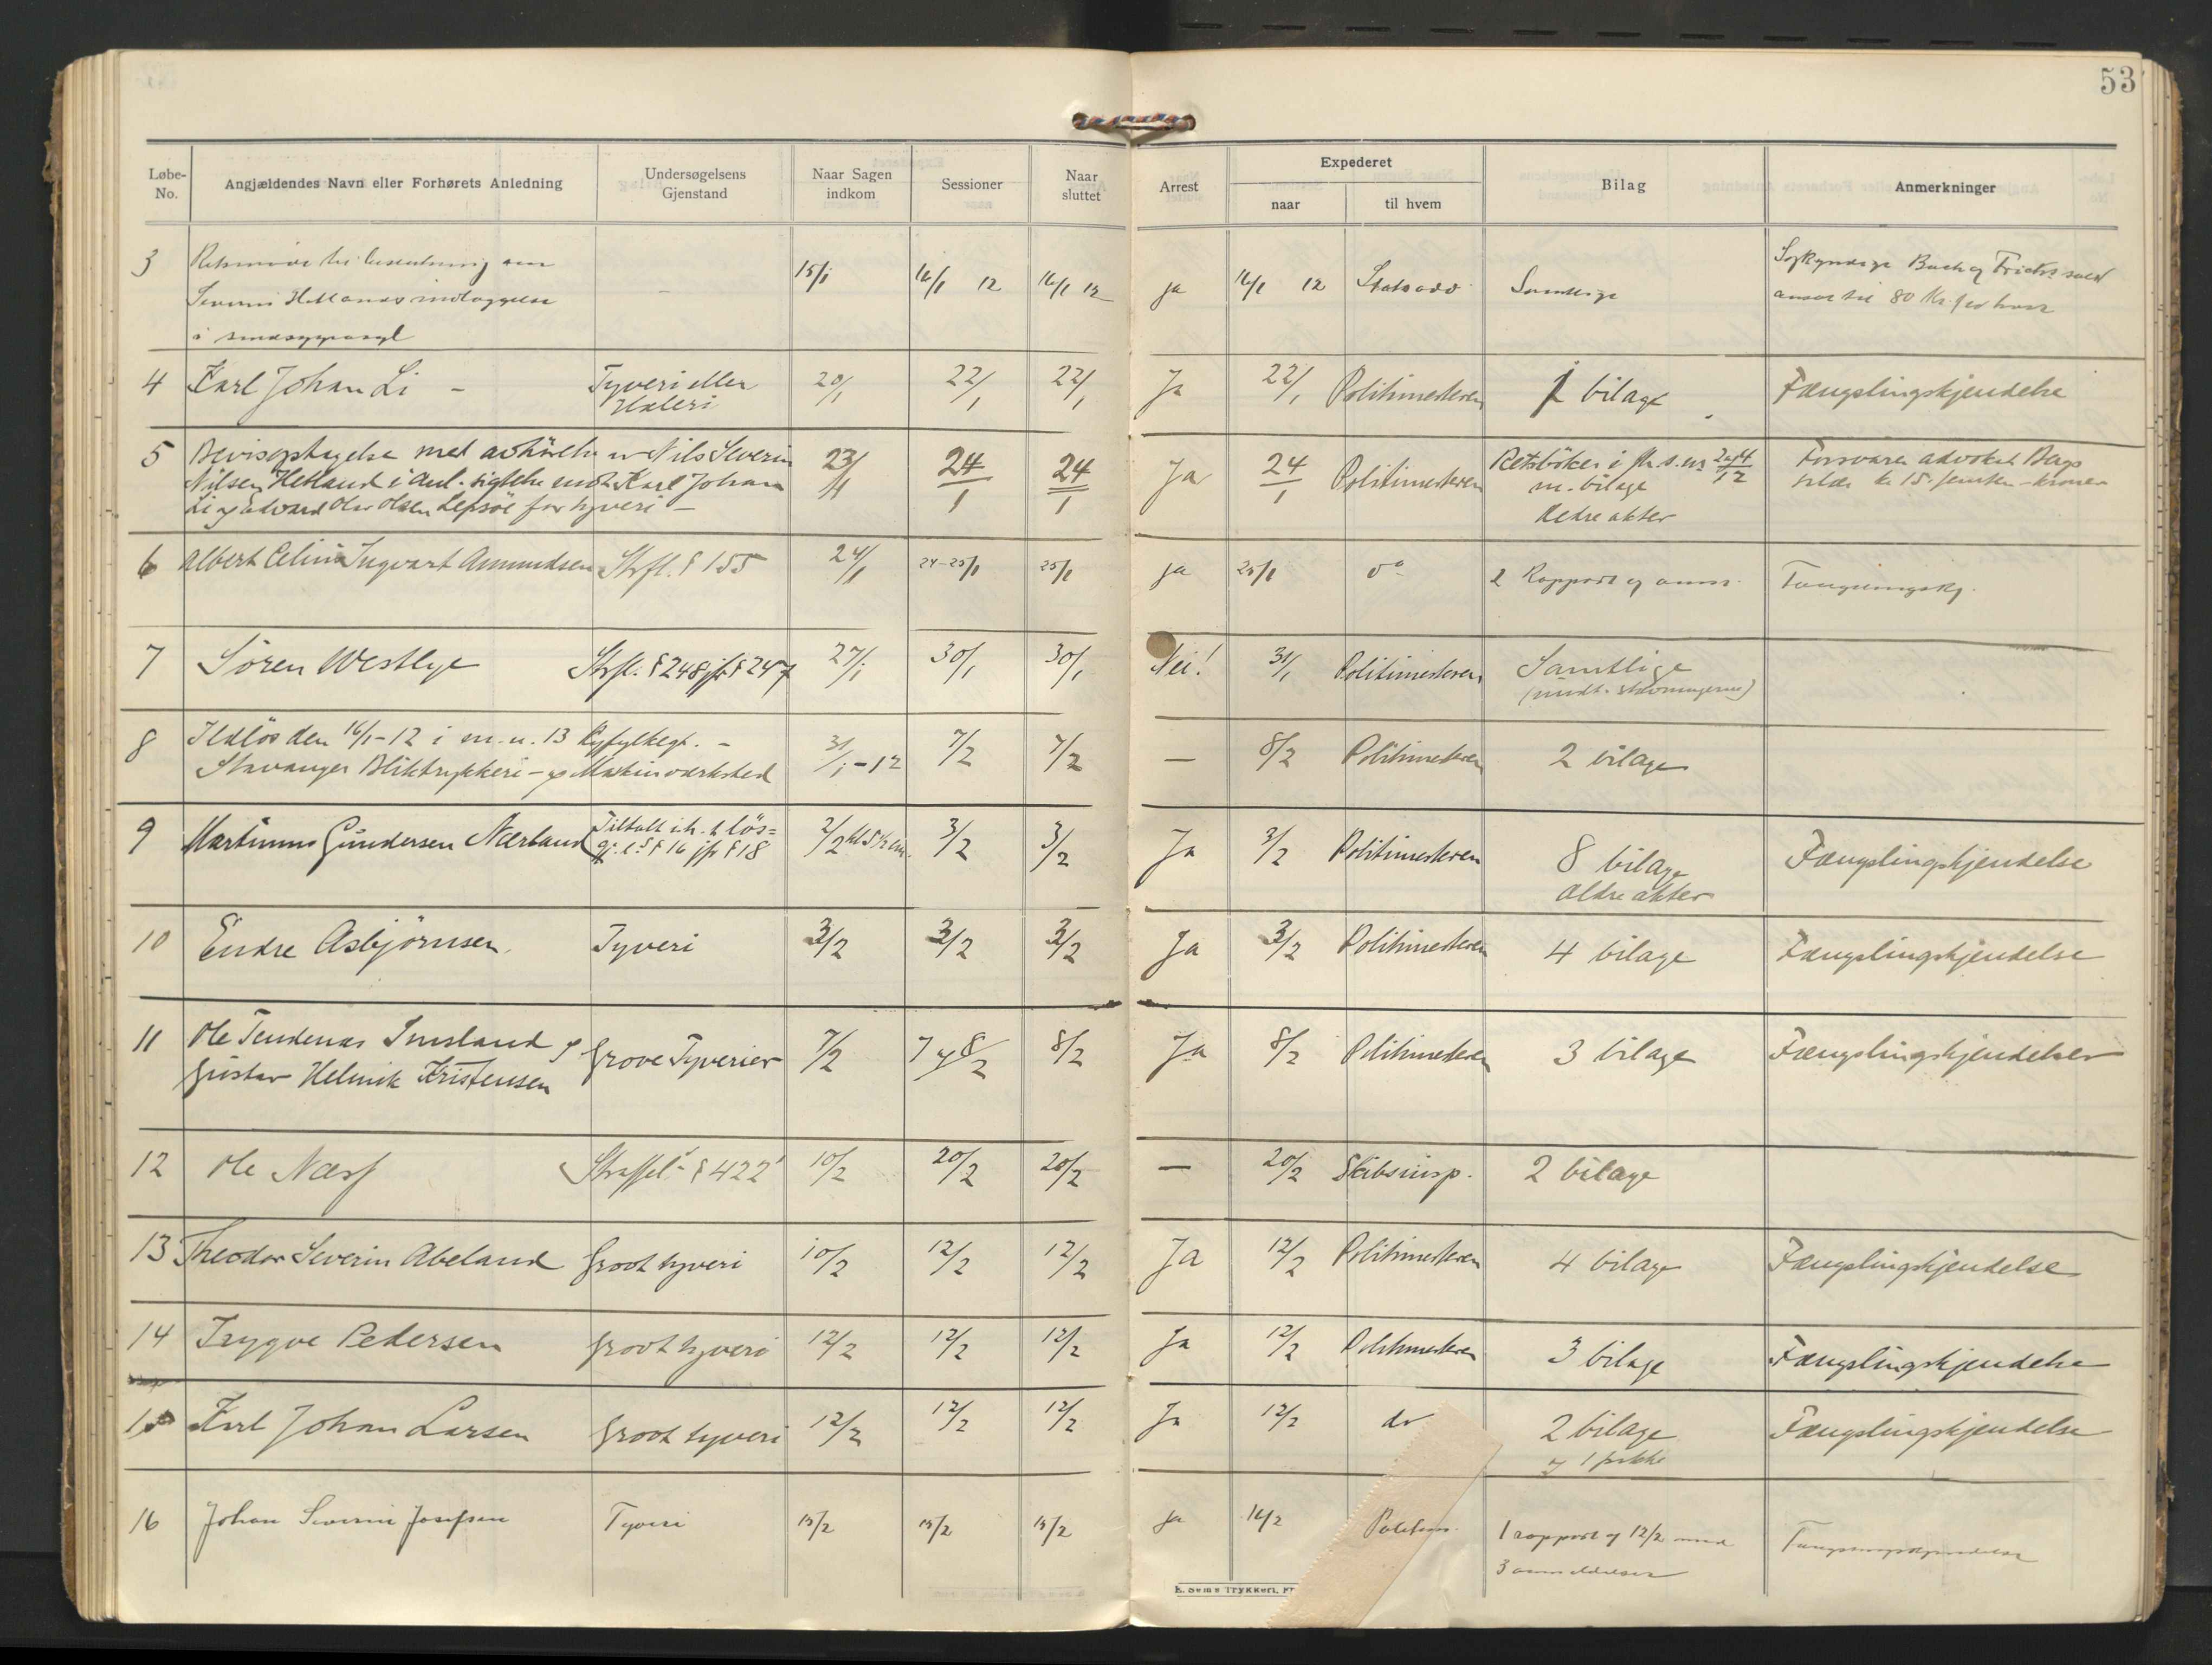 53
Løbe-No. Angjældendes Navn eller Forhørets Anledning Undersøgelsens Gjenstand Naar Sagen indkom Sessioner Naar sluttet Arrest Expederet naar til hvem Bilag Anmerkninger
3 Retsmøde til
Severin Hetlands indlæggelse
i sindssygeasyl
15/1 16/1 12 16/1 12 ja 16/1 12 Statsadv. Samtlige
Sakkyndige
80 Kr. hver
4 Karl Johan Li – Tyveri eller 20/1 22/1 22/1 Ja 22/1 Politimesteren 1 bilage Fængslingskjendelse
Hæleri
5 Bevisoptagelse med avhörelse av Nils Severin 23/1 24/1 24/1 Ja 24/1 Politimesteren Retsböker i m. bilage Forsvarer advokat
Nilsen Hetland i anl. sigtelse mot Karl Johan
Li og Edvard Olai Olsen Lepsöe for tyveri –
ældre akter
kr 15 femten kroner
6 Albert Celius Ingvart Amundsen Strfl. § 155 24/1 24-25/1 25/1 ja 25/1 do 2 Rapport og anm. Fængslingskj.
7 Sören Westlye Strfl. § 248 jfr § 247 27/1 30/1 30/1 Nei! 31/1 Politimesteren Samtlige
(undt. stævningerne)
8 Ildlös den 16/1-12 i m. n. 13 Ryfylkegt. – 31/1-12 7/2 7/2 — 8/2 Politimesteren 2 bilage
Stavanger Bliktrykkeri- og Maskinværksted
9 Martinus Gundersen Nærland Tiltalt i h. t. lös= 2/2 kl 5 1/2 em. 3/2 3/2 Ja 3/2 Politimesteren 8 bilage Fængslingskjendelse
gj. l. § 16 jfr § 18
ældre akter
10 Endre Asbjörnsen Tyveri 3/2 3/2 3/2 Ja 3/2 Politimesteren 4 bilage Fængslingskjendelse
11 Ole Tendenes Imsland og Grove Tyverier 7/2 7 og 8/2 8/2 Ja 8/2 Politimesteren 3 bilage Fængslingskjendelser
Gustav Helmik Kristensen
12 Ole Næss Straffel. § 422 10/2 20/2 20/2 — 20/2 Skibsinsp. 2 bilage
13 Theodor Severin Abeland Grovt tyveri 10/2 12/2 12/2 Ja 12/2 Politimesteren 4 bilage Fængslingskjendelse
14 Trygve Pedersen Grovt tyveri 12/2 12/2 12/2 Ja 12/2 Politimesteren 3 bilage Fængslingskjendelse
15 Karl Johan Larsen Grovt tyveri 12/2 12/2 12/2 Ja 12/2 do 2 bilage Fængslingskjendelse
og 1 pakke
16 Johan Severin Josefsen Tyveri 15/2 15/2 15/2 ja 16/2 Politim. 1 rapport af 12/2 med Fængslingskjendelse
3 anmeldelser
E. Sem's Trykkeri, Fr